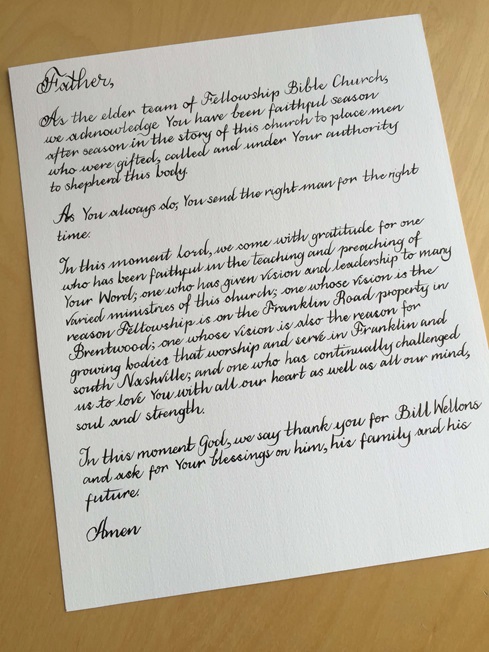 Father,
As the elder team of Fellowship Bible Church,
we acknowledge You have been faithful season
after season in the story of this church to place men
who were gifted, called and under Your authority
to shepherd this body.
As You always do, You send the right man for the right
time.
In this moment Lord, we come with gratitude for one
who has been faithful in the teaching and preaching of
Your Word; one who has given vision and leadership to many
varied ministries of this church; one whose vision is the
reason Fellowship is on the Franklin Road property in
Brentwood; one whose vision is also the reason for
growing bodies that worship and serve in Franklin and
south Nashville; and one who has continually challenged
us to love You with all our heart as well as all our mind,
soul and strength.
In this moment God, we say thank you for Bill Wellons
and ask for Your blessings on him, his family and his
future.
Amen